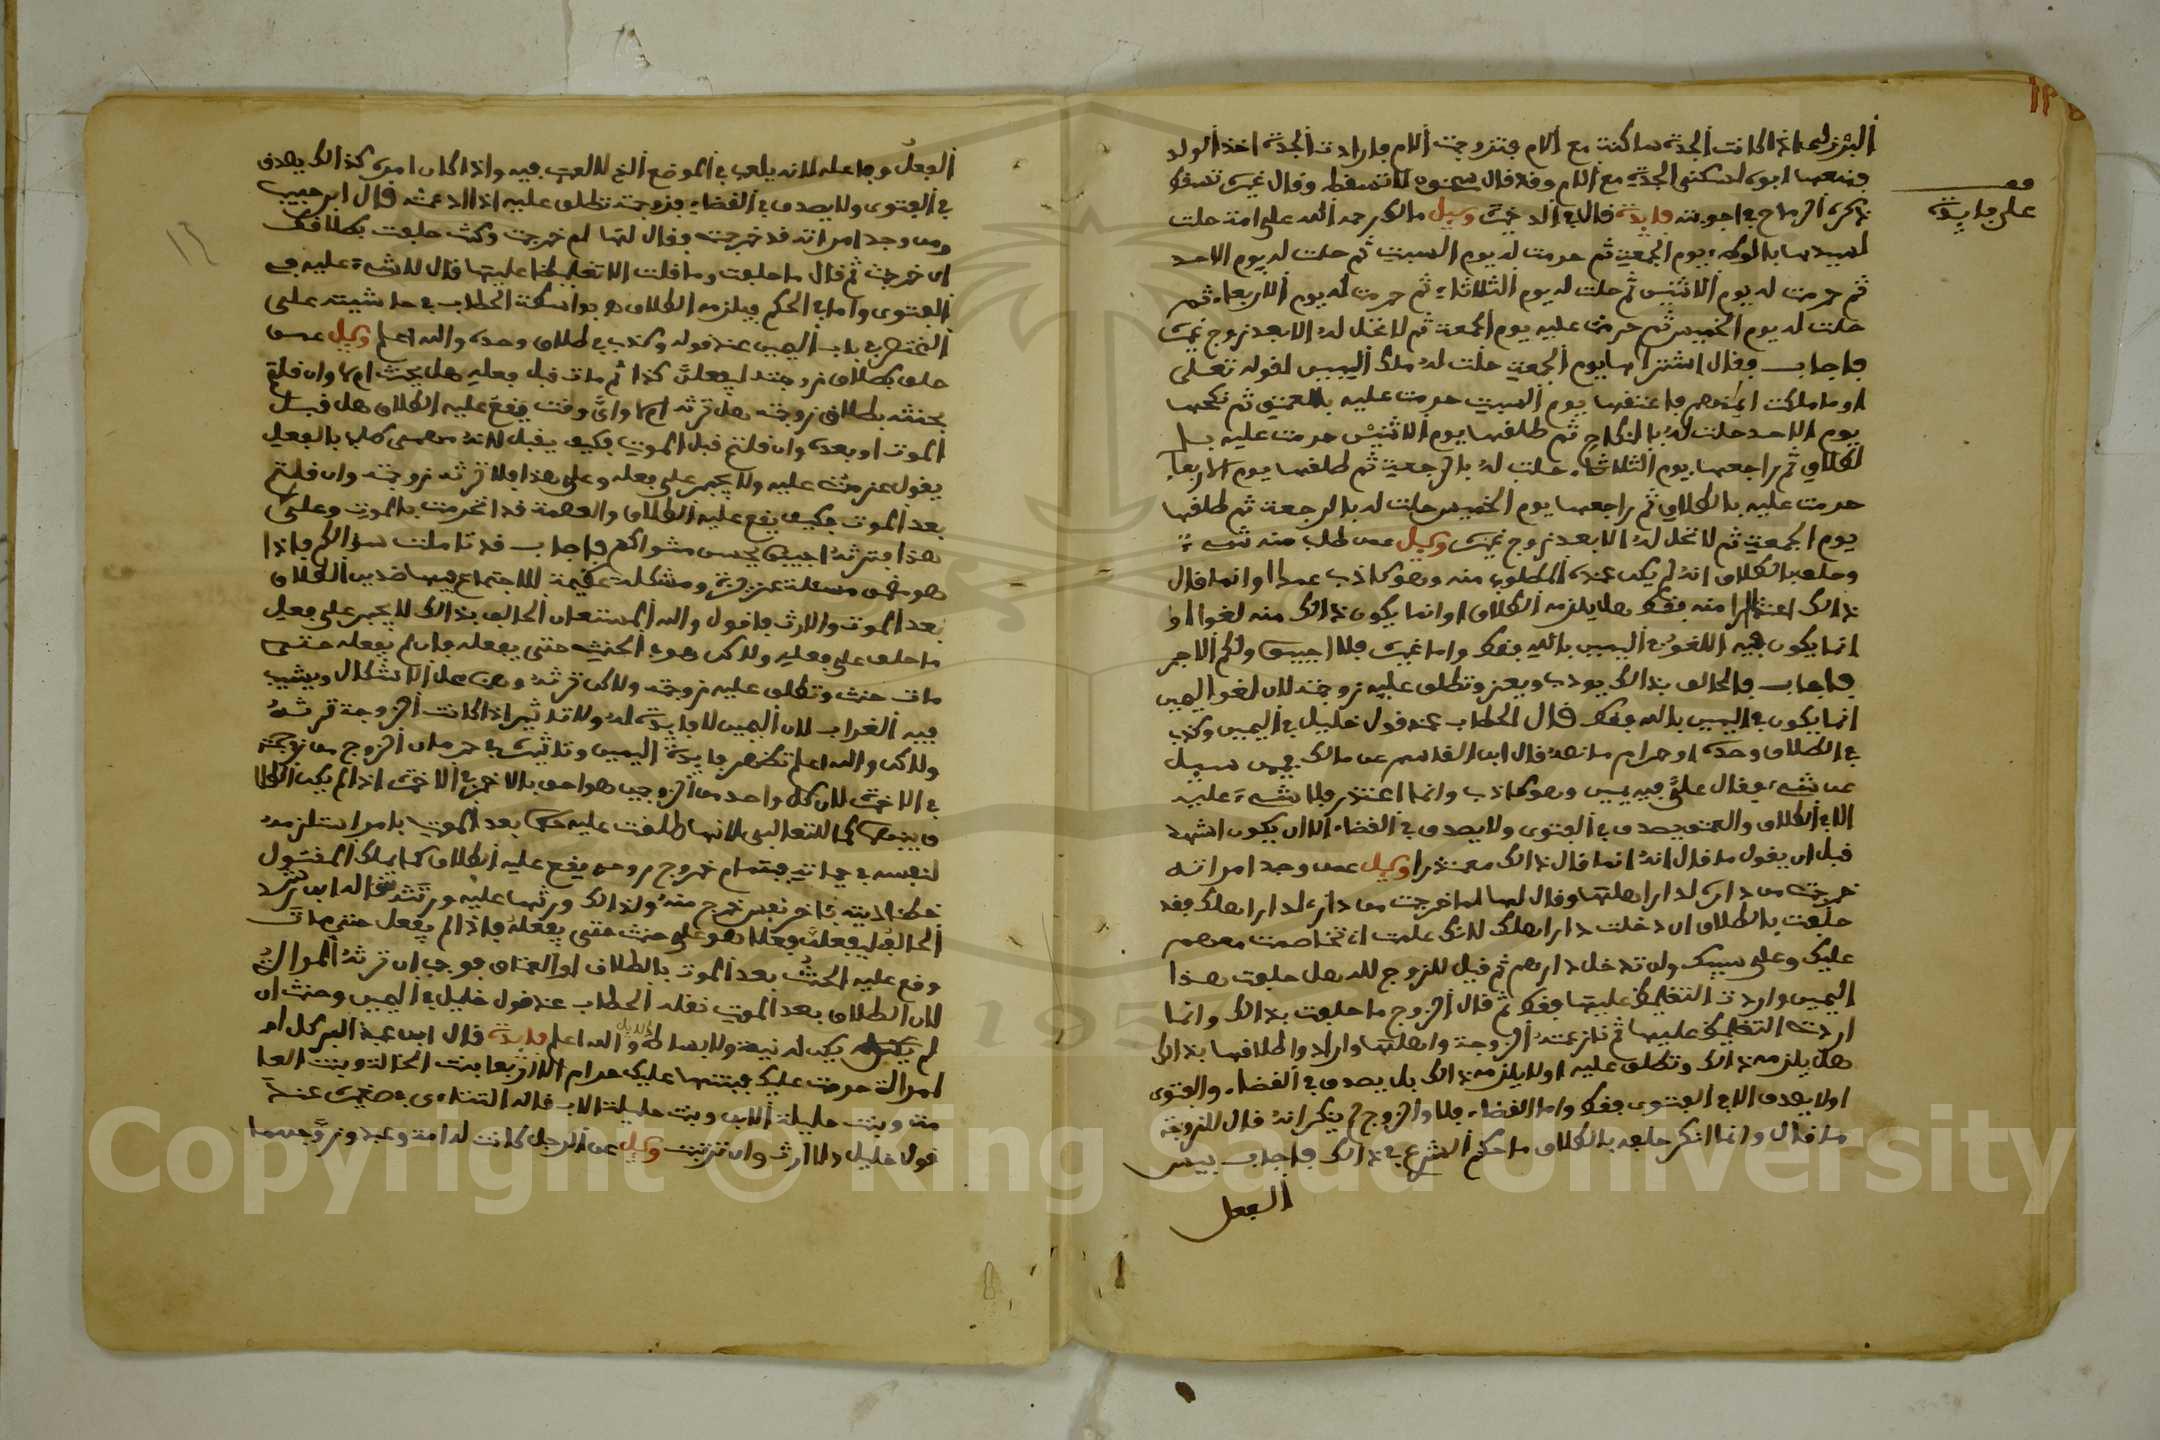 البرزلي اذا كانت الجدة ساكنة مع الام فتزوجت الام فارادت الجدة اخذ الولد
فمنعها ابوه لسكنى الجدة مع الام وقد قال سحنون لا تسقط وقال غيره تسقط
ذكره في اجوبته فايدة قال في الذخيرة وسيل مالك رحمه الله على امة حلت
لسيدها بالوطء يوم الجمعة ثم حرمت له يوم السبت ثم حلت له يوم الاحد
ثم حرمت له يوم الاثنين ثم حلت له يوم الثلاثاء ثم حرمت له يوم الاربعاء ثم
حلت له يوم الخميس ثم حرمت عليه يوم الجمعة ثم لا تحل له الا بعد زوج غيره
فاجاب وقال اشتراها يوم الجمعة حلت له ملك اليمين لقوله تعلى
او ما ملكت ايمانهم فاعتقها يوم السبت حرمت عليه بالعتق ثم نكحها
يوم الاحد حلت له بالنكاح ثم طلقها يوم الاثنين حرمت عليه با
لطلاق ثم راجعها يوم الثلاثاء حلت له بالرجعة ثم طلقها يوم الاربعاء
حرمت عليه بالطلاق ثم راجعها يوم الخميس حلت له بالرجعة ثم طلقها
يوم الجمعة ثم لا تحل له الا بعد زوج غيره وسيل عمن طلب منه شيء
وحلف بالطلاق انه لم يكن عنده المطلوب منه وهو كاذب عمدا وانما قال
ذالك اعتذارا منه فقط هل يلزمه الطلاق او انما يكون ذالك منه لغوا او
انما يكون فيه اللغو في اليمين بالله فقط واما غيره فلا اجيبوا ولكم الاجر
فاجاب فالحالف بذالك يودب ويعزر وتطلق عليه زوجته لان لغو اليمين
انما يكون في اليمين بالله فقط قال الحطاب عند قول خليل في اليمين وكذب
في الطلاق وحده او حرام ما نصه قال ابن القاسم عن مالك فيمن سيل
عن شيء فقال عليّ فيه يمين وهو كاذب وانما اعتذر فلا شيء عليه
الا في الطلاق والعتق يصدق في الفتوى ولا يصدق في القضاء الا ان يكون اشهد
قبل ان يقول ما قال انه انما قال ذالك معتذرا وسيل عمن وجد امراته
خرجت من داره لدار اهلها وقال لها لما خرجت من داري لدار اهلك فقد
حلفت بالطلاق ان دخلت دار اهلك لانك علمت ان تخاصمت معهم
عليك وعلى سببك ولن تدخل دارهم ثم قيل للزوج لله هل حلفت هذا
اليمين واردت التغليظ عليها فقط ثم قال الزوج ما حلفت بذالك وانما
اردت التغليظ عليها ثم نازعته الزوجة واهلها وارادوا طلاقها بذالك
هل يلزمه ذالك وتطلق عليه او لا يلزمه ذالك بل يصدق في القضاء والفتوى
او لا يصدق الا في الفتوى فقط واما القضاء فلا والزوج لم ينكر انه قال للزوجة
ما قال وانما انكر حلفه بالطلاق ما حكم الشرع في ذالك فاجاب بيمين
الفعل
وقف
على فايدة
الفعل وفاعله لانه يلعب في الموضع الذي لا لعب فيه واذا كان امره كذالك يصدق
في الفتوى ولا يصدق في القضاء فزوجته تطلق عليه اذا ادعته قال ابن حبيب
ومن وجد امراته قد خرجت فقال لها لم خرجت وكنت حلفت بطلاقك
ان خرجت ثم قال ما حلفت وما قلت الا تغليظا عليها قال لا شيء عليه في
الفتوى واما في الحكم فيلزمه الطلاق هو بواسطة الحطاب في حاشيته على
المختصر في باب اليمين عند قوله وكذب في طلاق وحده والله اعلم وسيل عمن
حلف بطلاق زوجته ليفعلن كذا ثم مات قبل فعله هل يحنث ام لا وان قلتم
بحنثه بطلاق زوجته هل ترثه ام لا واي وقت يقع عليه الطلاق هل قبل
الموت او بعده وان قلتم قبل الموت فكيف يقبل لانه بالفعل
يقول عزمت عليه ولا يجبر على فعله وعلى هذا فلا ترثه زوجته وان قلتم
بعد الموت فكيف يقع عليه الطلاق والعصمة قد انحرمت بالموت وعلى
هذا فترثه اجيبوا يحسن مثواكم فاجاب قد تاملت سوالكم فاذا
هو مسئلة عزيزة ومشكلة عظيمة للاجتماع فيها ضدين الطلاق
بعد الموت والارث فاقول والله المستعان الحالف بذالك لا يجبر على فعل
ما حلف على فعله ولاكن هو في الحنث حتى يفعله فان لم يفعله حتى
مات حنث وتطلق عليه زوجته ولاكن ترثه وهنا محل الاشكال ويشيب
فيه الغراب لان اليمين لا فايدة له ولا تاثير اذا كانت الزوجة ترثه
ولاكن والله اعلم تظهر فايدة اليمين وتاثيره في حرمان الزوج من زوجته
في الاخرة لان كل واحد من الزوجين هو احق بالاخر في الاخرة اذا لم يكن الطلا
ق بينهما كما للثعالبي لانها طلقت عليه حكما بعد الموت بامر استلزمه
لنفسه في حياته فبتمام خروج روحه يقع عليه الطلاق كما يملك المقتول
خطئا ديته باخر نفس خرج منه ولذالك ورثها عليه ورثته قاله ابن رشد
الحالف ليفعلن فعلا هو على حنث حتى يفعله فاذا لم يفعل حتى مات
وقع عليه الحنث بعد الموت بالطلاق او العتاق فوجب ان ترثه المراة
لان الطلاق بعد الموت نقله الحطاب عند قول خليل في اليمين وحنث ان
لم يكن له نية ولا بساط والله اعلم فايدة قال ابن عبد البر كل ام
امراة حرمت عليك فبنتها عليك حرام الا اربعا بنت الخالة وبنت العا
مة وبنت حليلة الابن وبنت حليلة الاب قاله التتاءى في صغيره عند
قول خليل وسيل عن الرجل كانت له امة وعبد وزوجهما